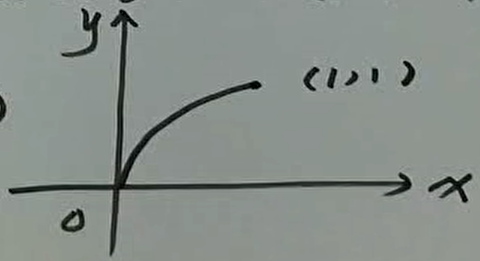 y
(1,1)
x
0